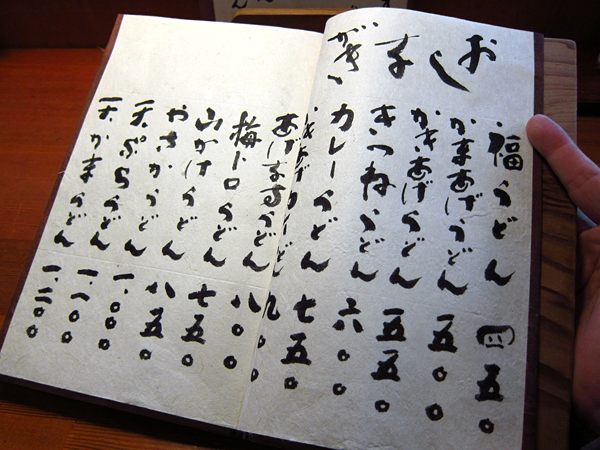 おしながき
福うどん 四五〇
かまあげうどん 五〇〇
かきあげうどん 五五〇
きつねうどん 六〇〇
カレーうどん 七五〇
うどん 九
あげなすうどん 八〇〇
梅トロうどん 七五〇
山かけうどん 八五〇
やさかうどん 一、〇〇〇
天ぷらうどん 一、一〇〇
天かまうどん 一、二〇〇